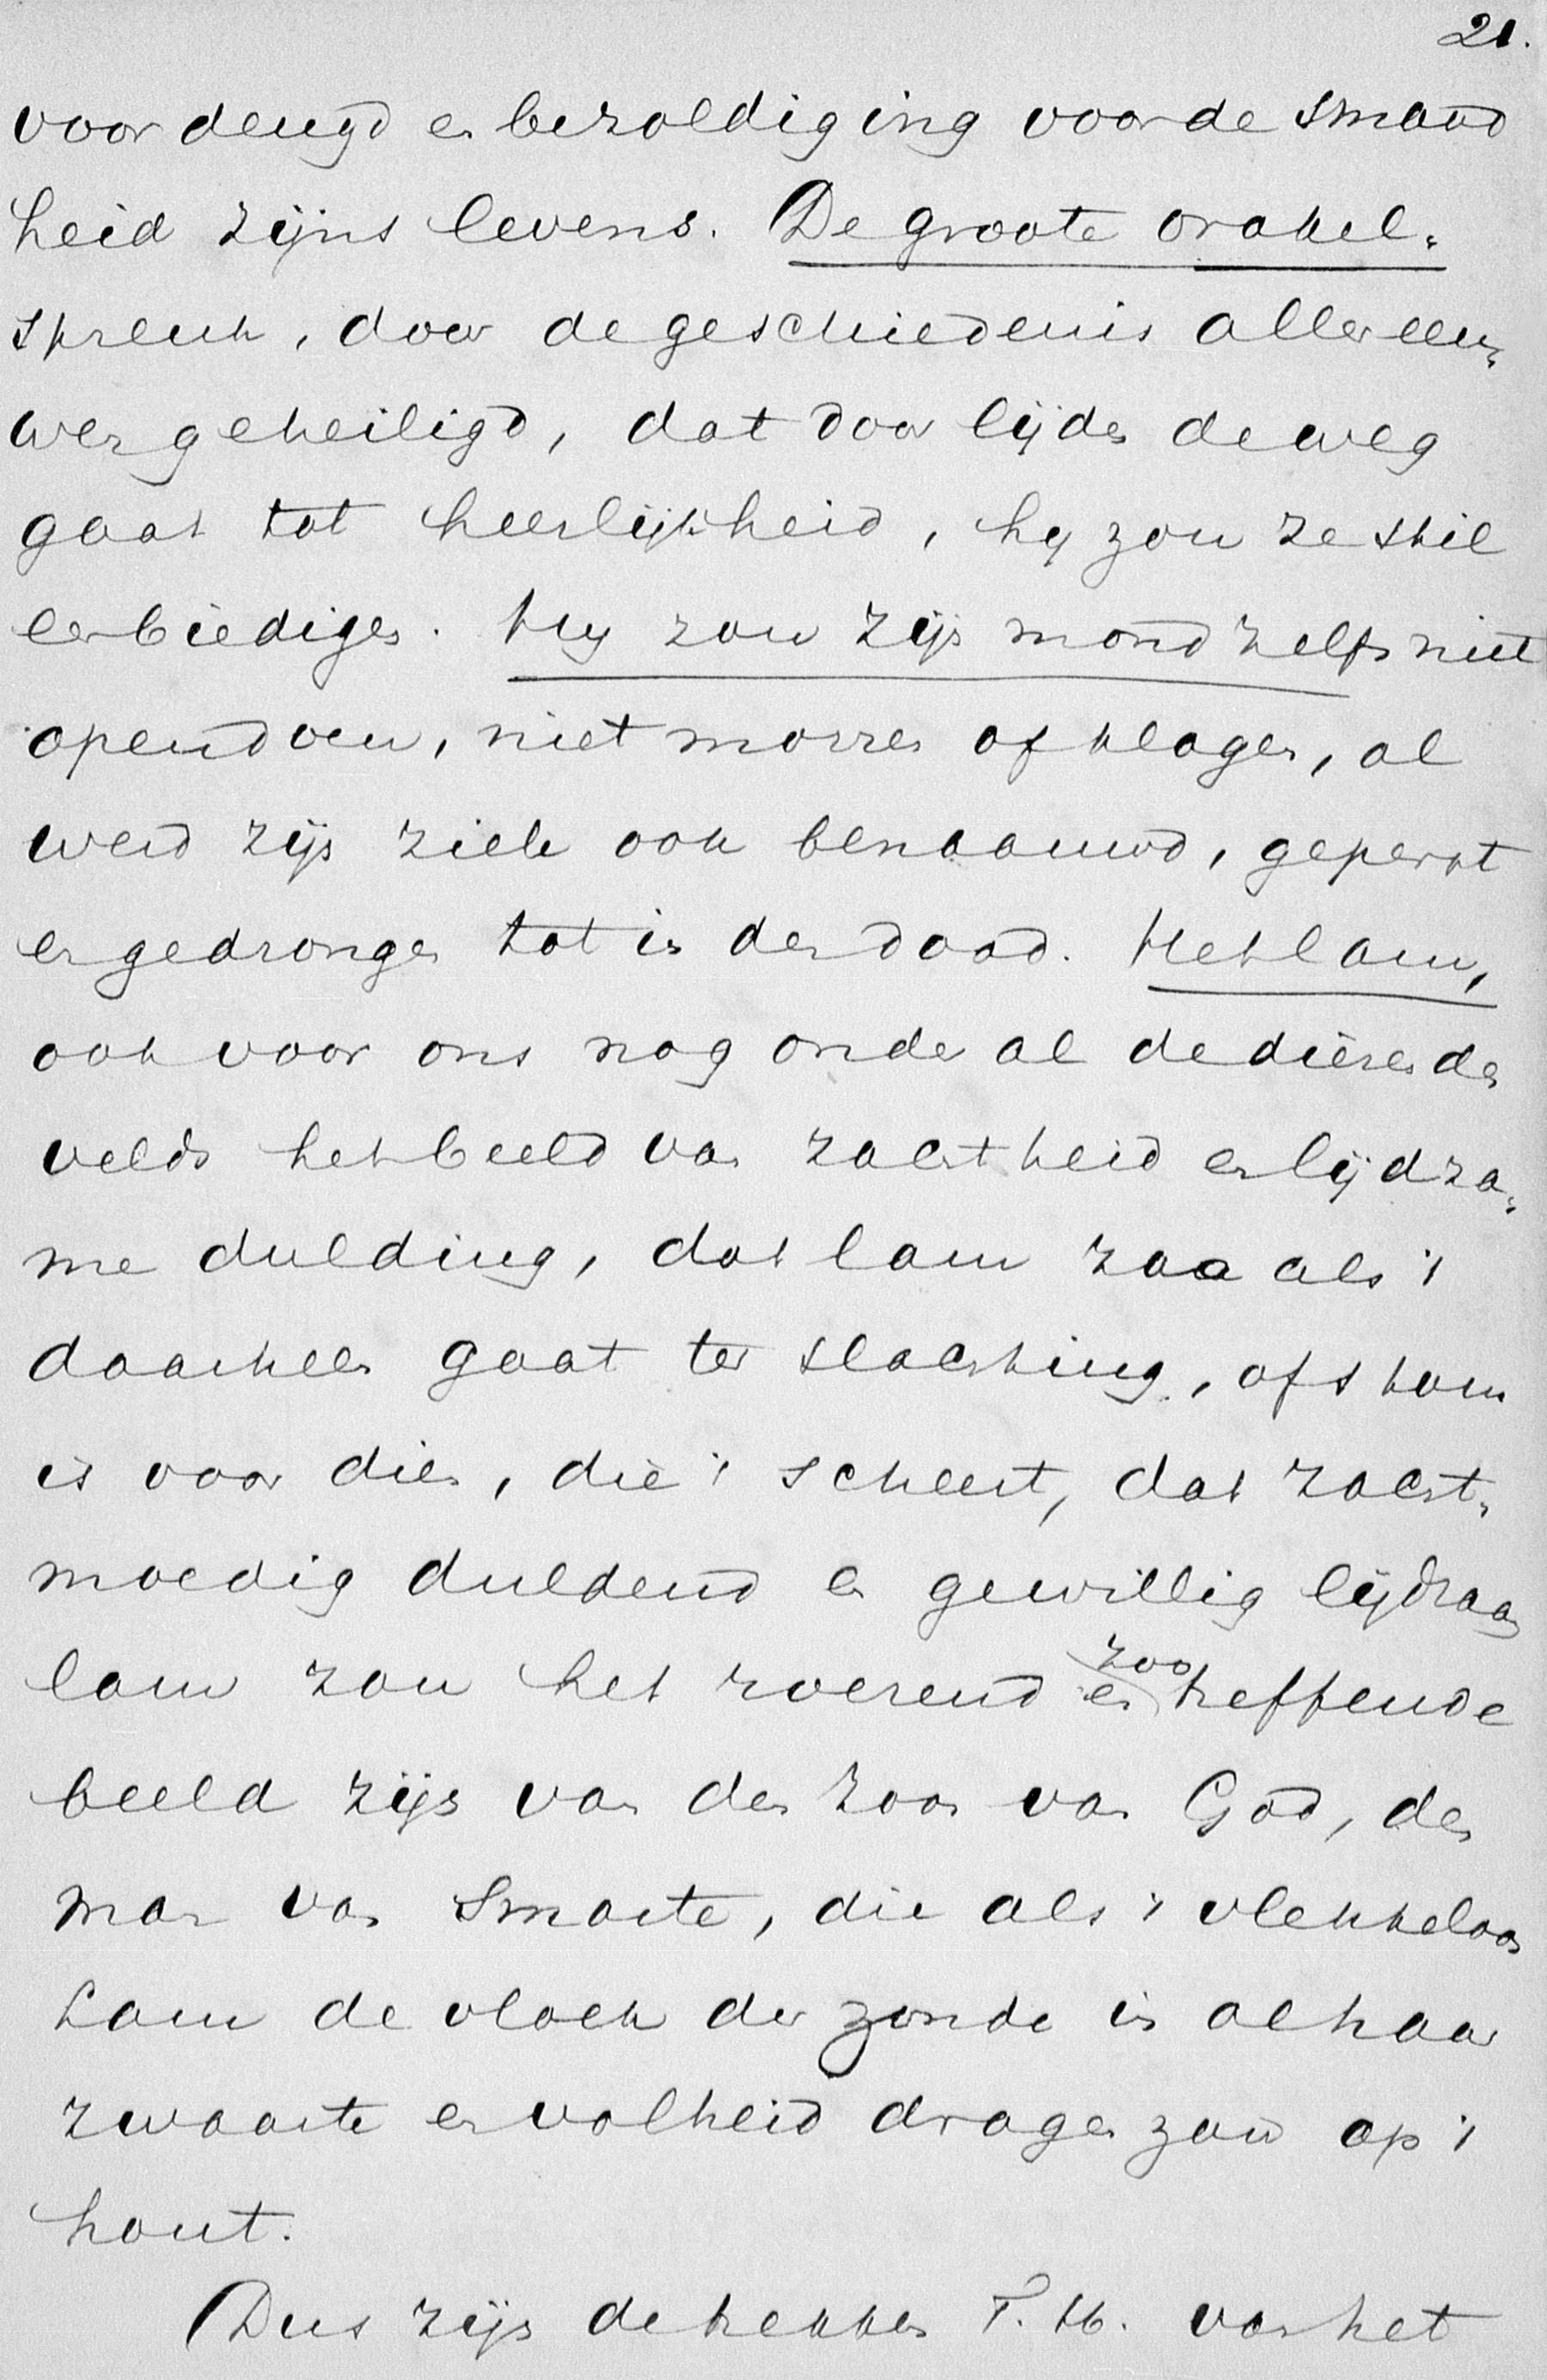 21.
voor deugd en bezoldiging voor de smaad
heid zijns levens. De groote orakel-
spreuk, door de geschiedenis aller eeu-
wen geheiligd, dat door lijden de weg
gaat tot heerlijkheid, hij zou ze stil
eerbiedigen. Hij zou zijn mond zelfs niet
opendoen, niet morren of klagen, al
werd zijn ziele ook benaauwd, geperst
en gedrongen tot in den dood. Het lam,
ook voor ons nog onder al de dieren des
velds het beeld van zachtheid en lijdza-
me dulding, dat lam zoo als 't
daarheen gaat ter slachting, of stom
is voor dien, die 't scheert, dat zacht-
moedig duldend en gewillig lijdzaam
lam zou het roerend en zoo treffende
beeld zijn van den Zoon van God, den
man van Smarte, die als 't vlekkeloos
Lam de vloek der zonde in al haar
zwaarte en volheid dragen zou op 't
hout.
Dus zijn de trekken T. H. van het